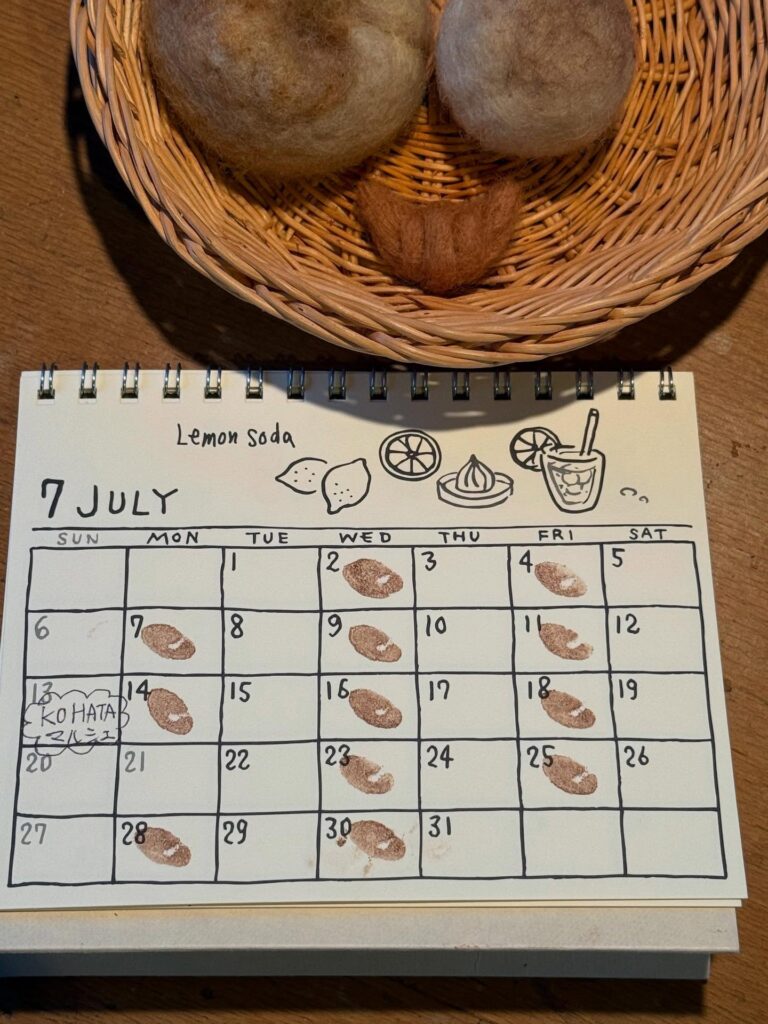 Lemon Soda
7 JULY
SUN MON TUE WED THU FRI SAT
1 2 3 4 5
6 7 8 9 10 11 12
13 14 15 16 17 18 19
KOHATA
マルシェ
20 21 22 23 24 25 26
27 28 29 30 31